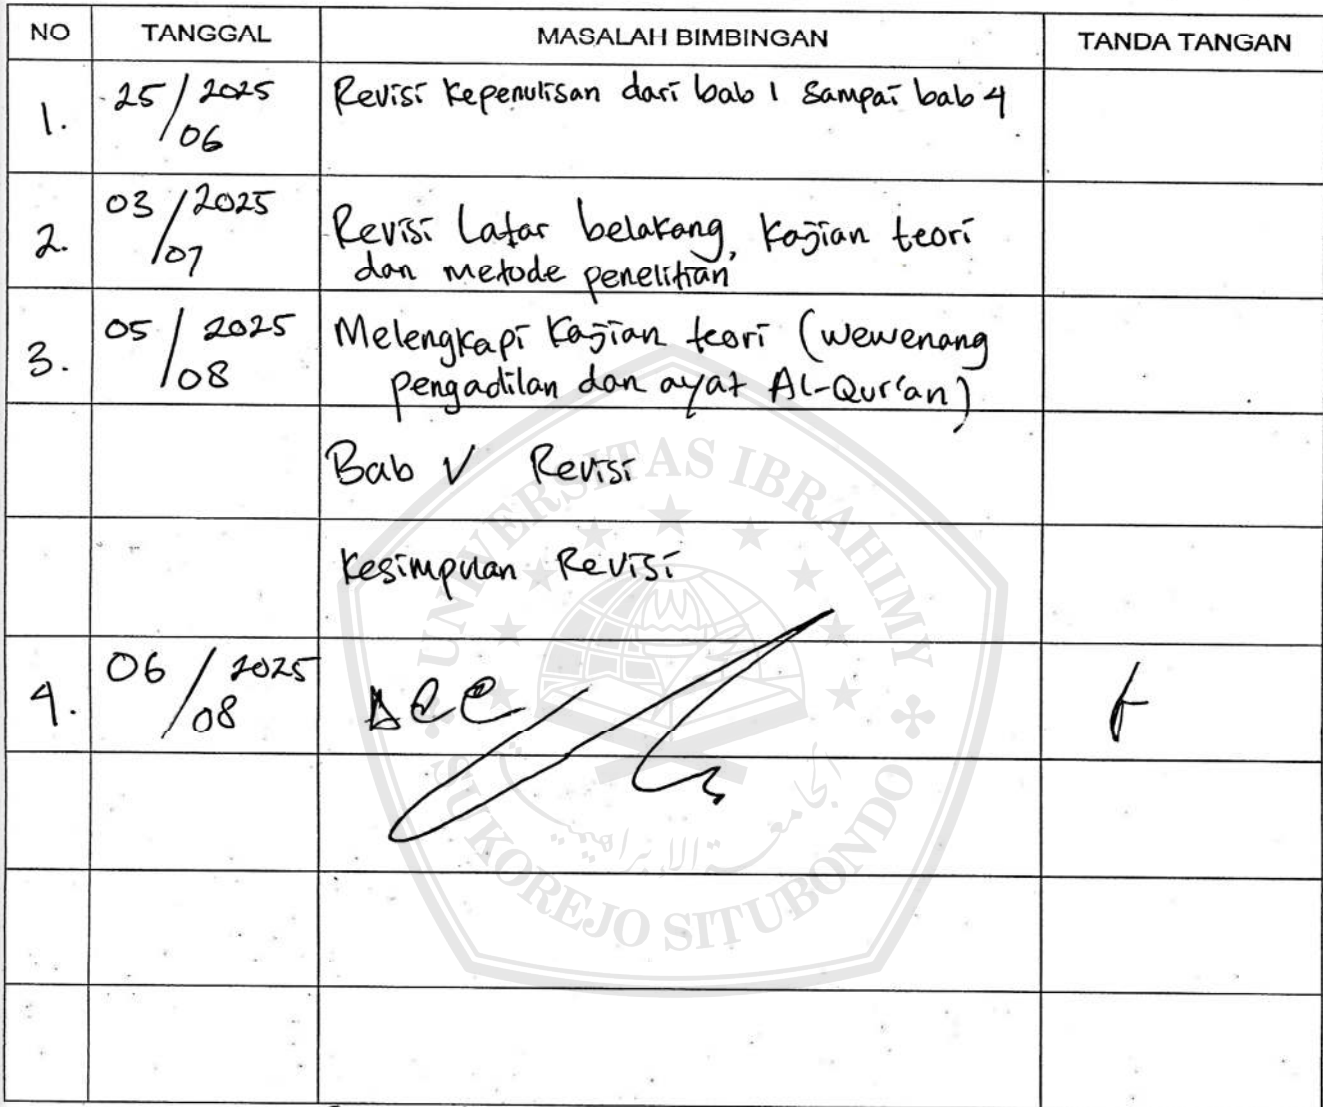 NO TANGGAL MASALAH BIMBINGAN TANDA TANGAN
1. 25/06 2025 Revisi kepenulisan dari bab 1 sampai bab 4
2. 03/07 2025 Revisi Latar belakang, kajian teori
dan metode penelitian
3. 05/08 2025 Melengkapi kajian teori (wewenang
pengadilan dan ayat Al-Qur'an)
Bab V Revisi
Kesimpulan Revisi
4. 06/08 2025 ACC
UNIVERSITAS IBRAHIMY
SUKOREJO SITUBONDO